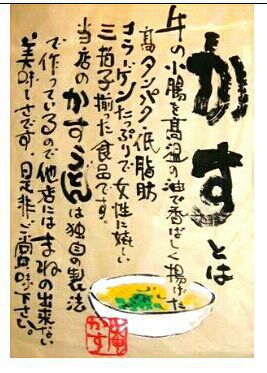 かすとは
牛の小腸を高温の油で香ばしく揚げた
高タンパク低脂肪
コラーゲンたっぷりで女性に嬉しい
三拍子揃った食品です。
当店のかすうどんは独自の製法
で作っているので他店にはまねの出来ない
美味しさです。是非ご賞味下さい。
かす